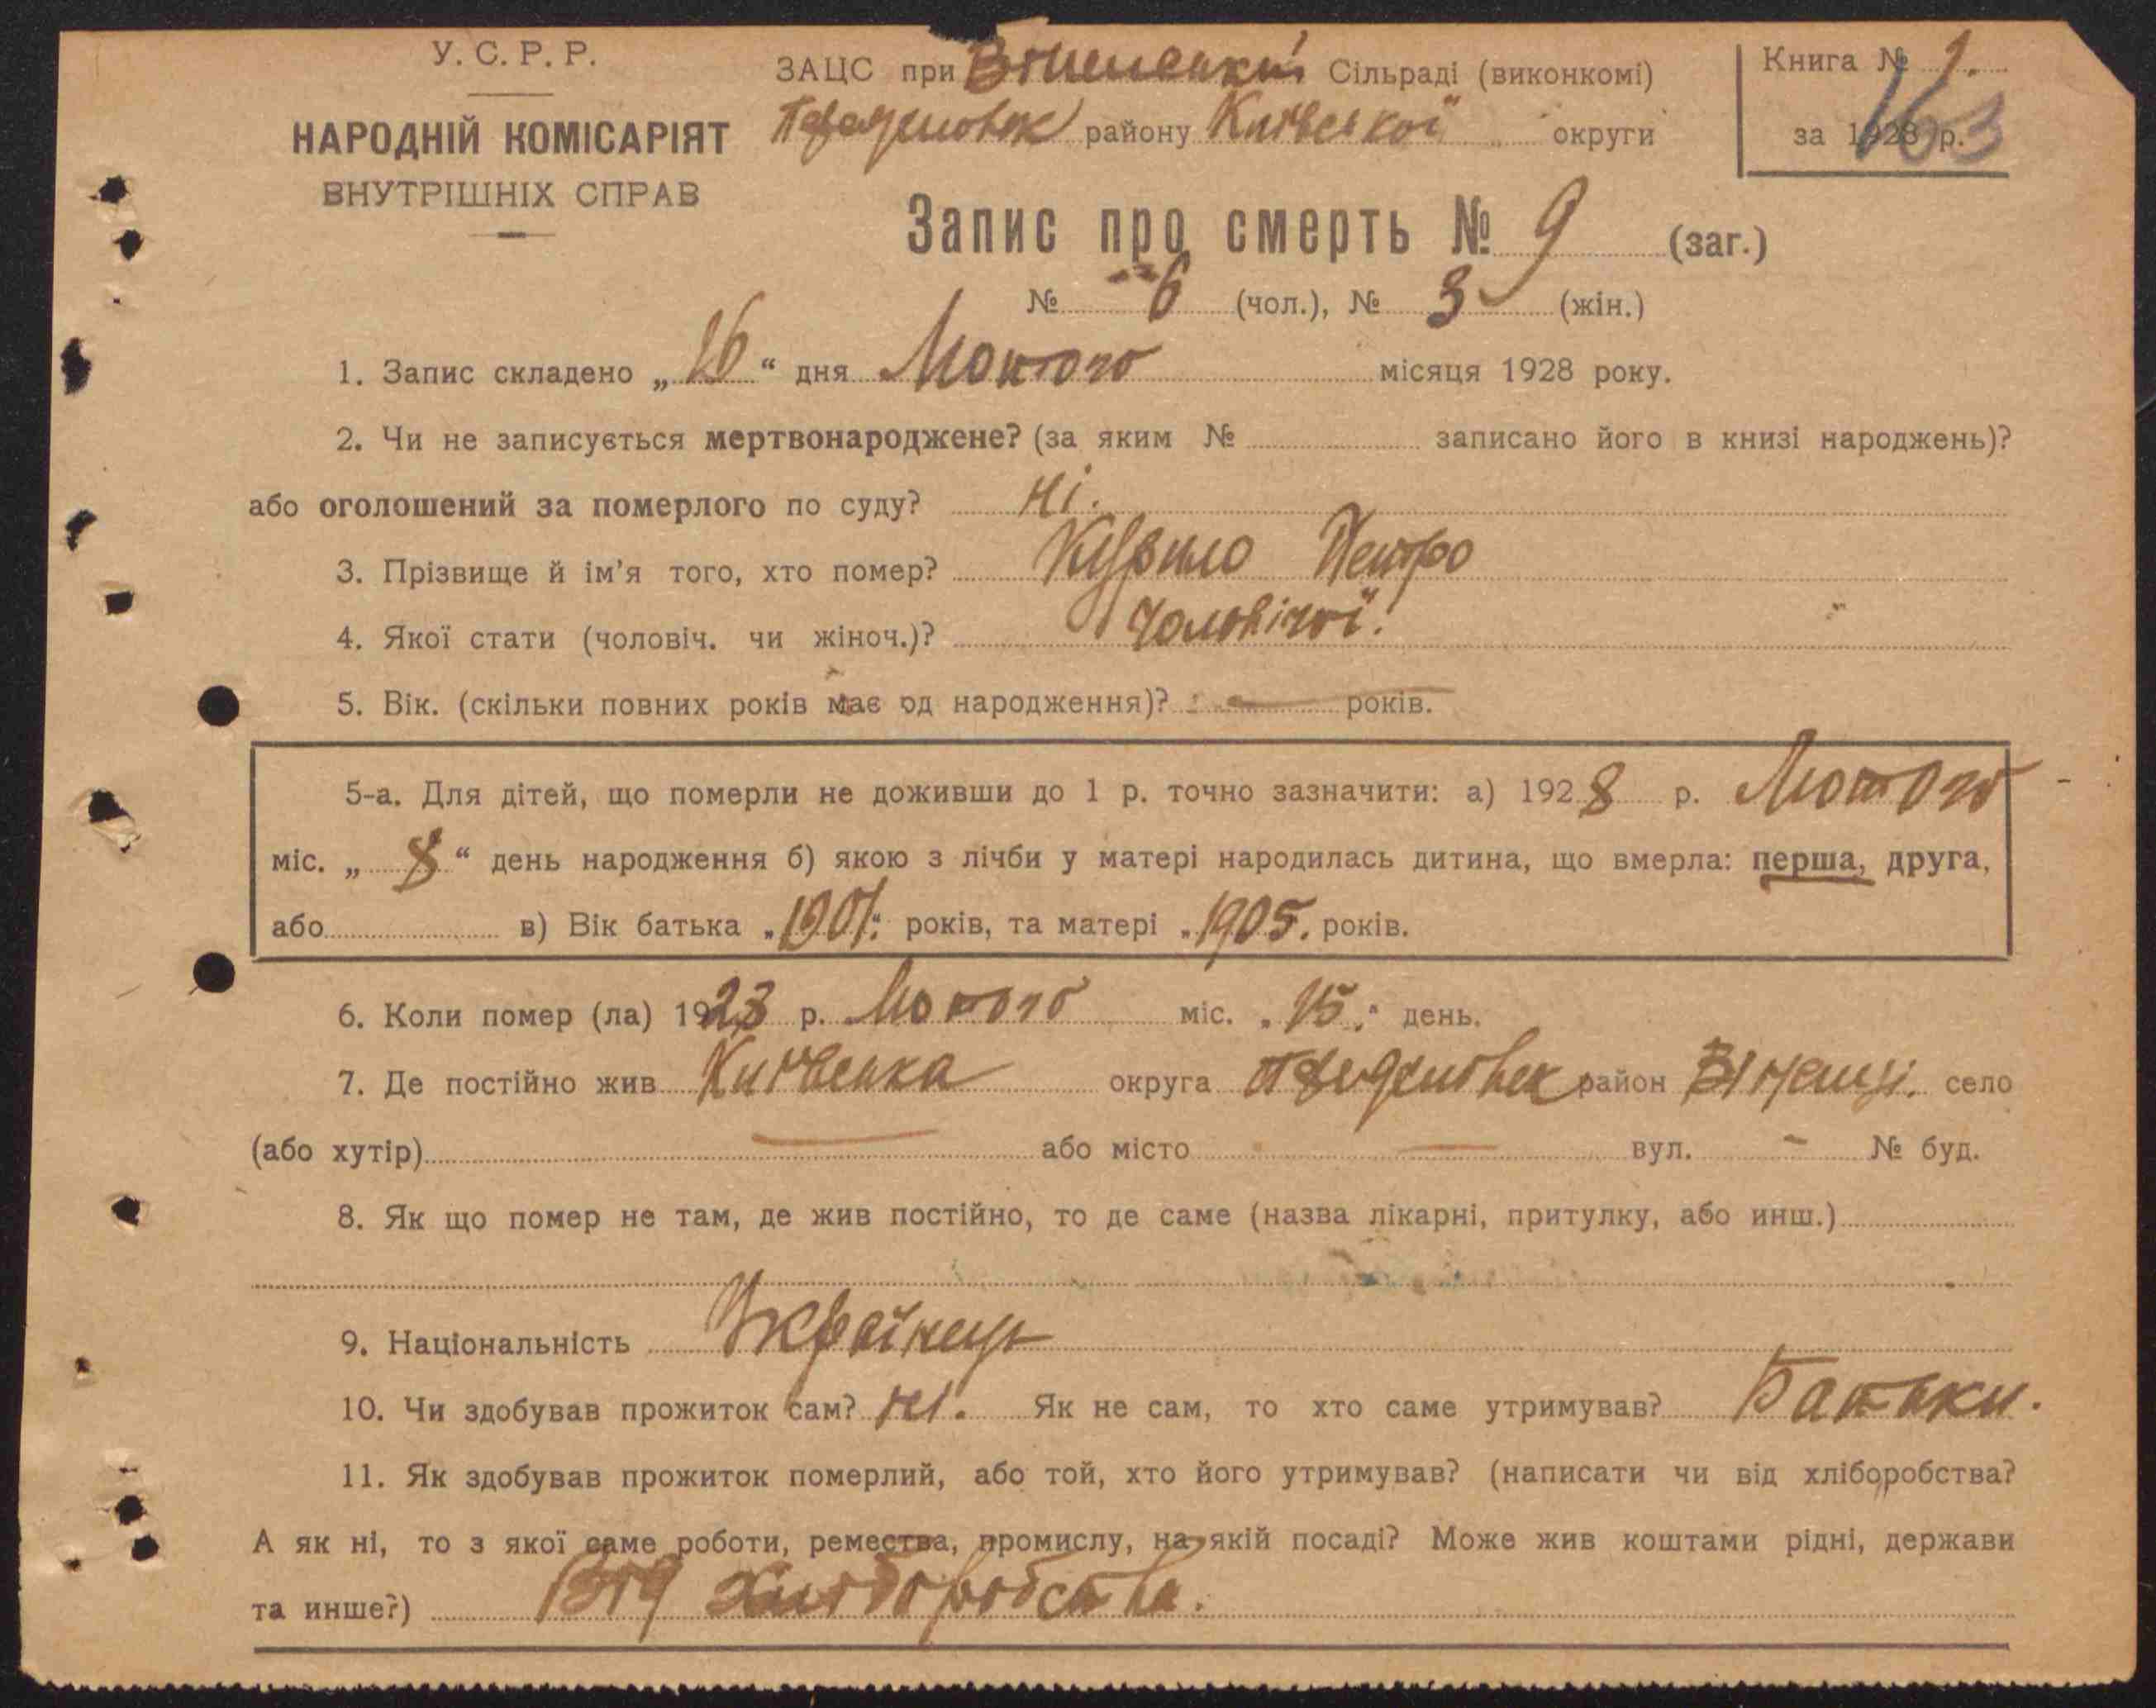 У. С. Р. Р.
НАРОДНІЙ КОМІСАРІЯТ
ВНУТРІШНІХ СПРАВ
ЗАЦС при Сільраді (виконкомі)
району Київської округи
Книга № 1.
за 1928 р.
163
Запис про смерть № 9 (заг.)
№ 6 (чол.), № 3 (жін.)
1. Запис складено „ 16 “ дня Лютого місяця 1928 року.
2. Чи не записується мертвонароджене? (за яким № записано його в книзі народжень)?
або оголошений за померлого по суду? Ні.
3. Прізвище й ім’я того, хто помер? Курило Петро
4. Якої стати (чоловіч. чи жіноч.)? Чоловічої.
5. Вік. (скільки повних років має од народження)? — років.
5-а. Для дітей, що померли не доживши до 1 р. точно зазначити: а) 1928 р. Лютого
міс. „ 8 “ день народження б) якою з лічби у матері народилась дитина, що вмерла: перша, друга,
або в) Вік батька „1901“ років, та матері „1905. років.
6. Коли помер (ла) 1928 р. Лютого міс. „15“ день.
7. Де постійно жив Київська округа район село
(або хутір) — або місто — вул. - № буд.
8. Як що помер не там, де жив постійно, то де саме (назва лікарні, притулку, або инш.)
9. Національність Українець
10. Чи здобував прожиток сам? Ні. Як не сам, то хто саме утримував? Батьки.
11. Як здобував прожиток померлий, або той, хто його утримував? (написати чи від хліборобства?
А як ні, то з якої саме роботи, ремества, промислу, на якій посаді? Може жив коштами рідні, держави
та инше?) Від хліборобства.